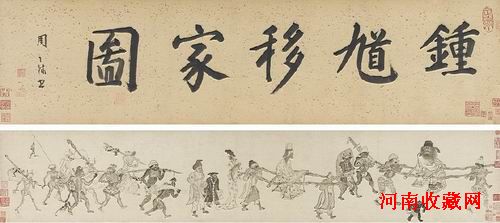 鍾馗移家圖
周
河南收藏网